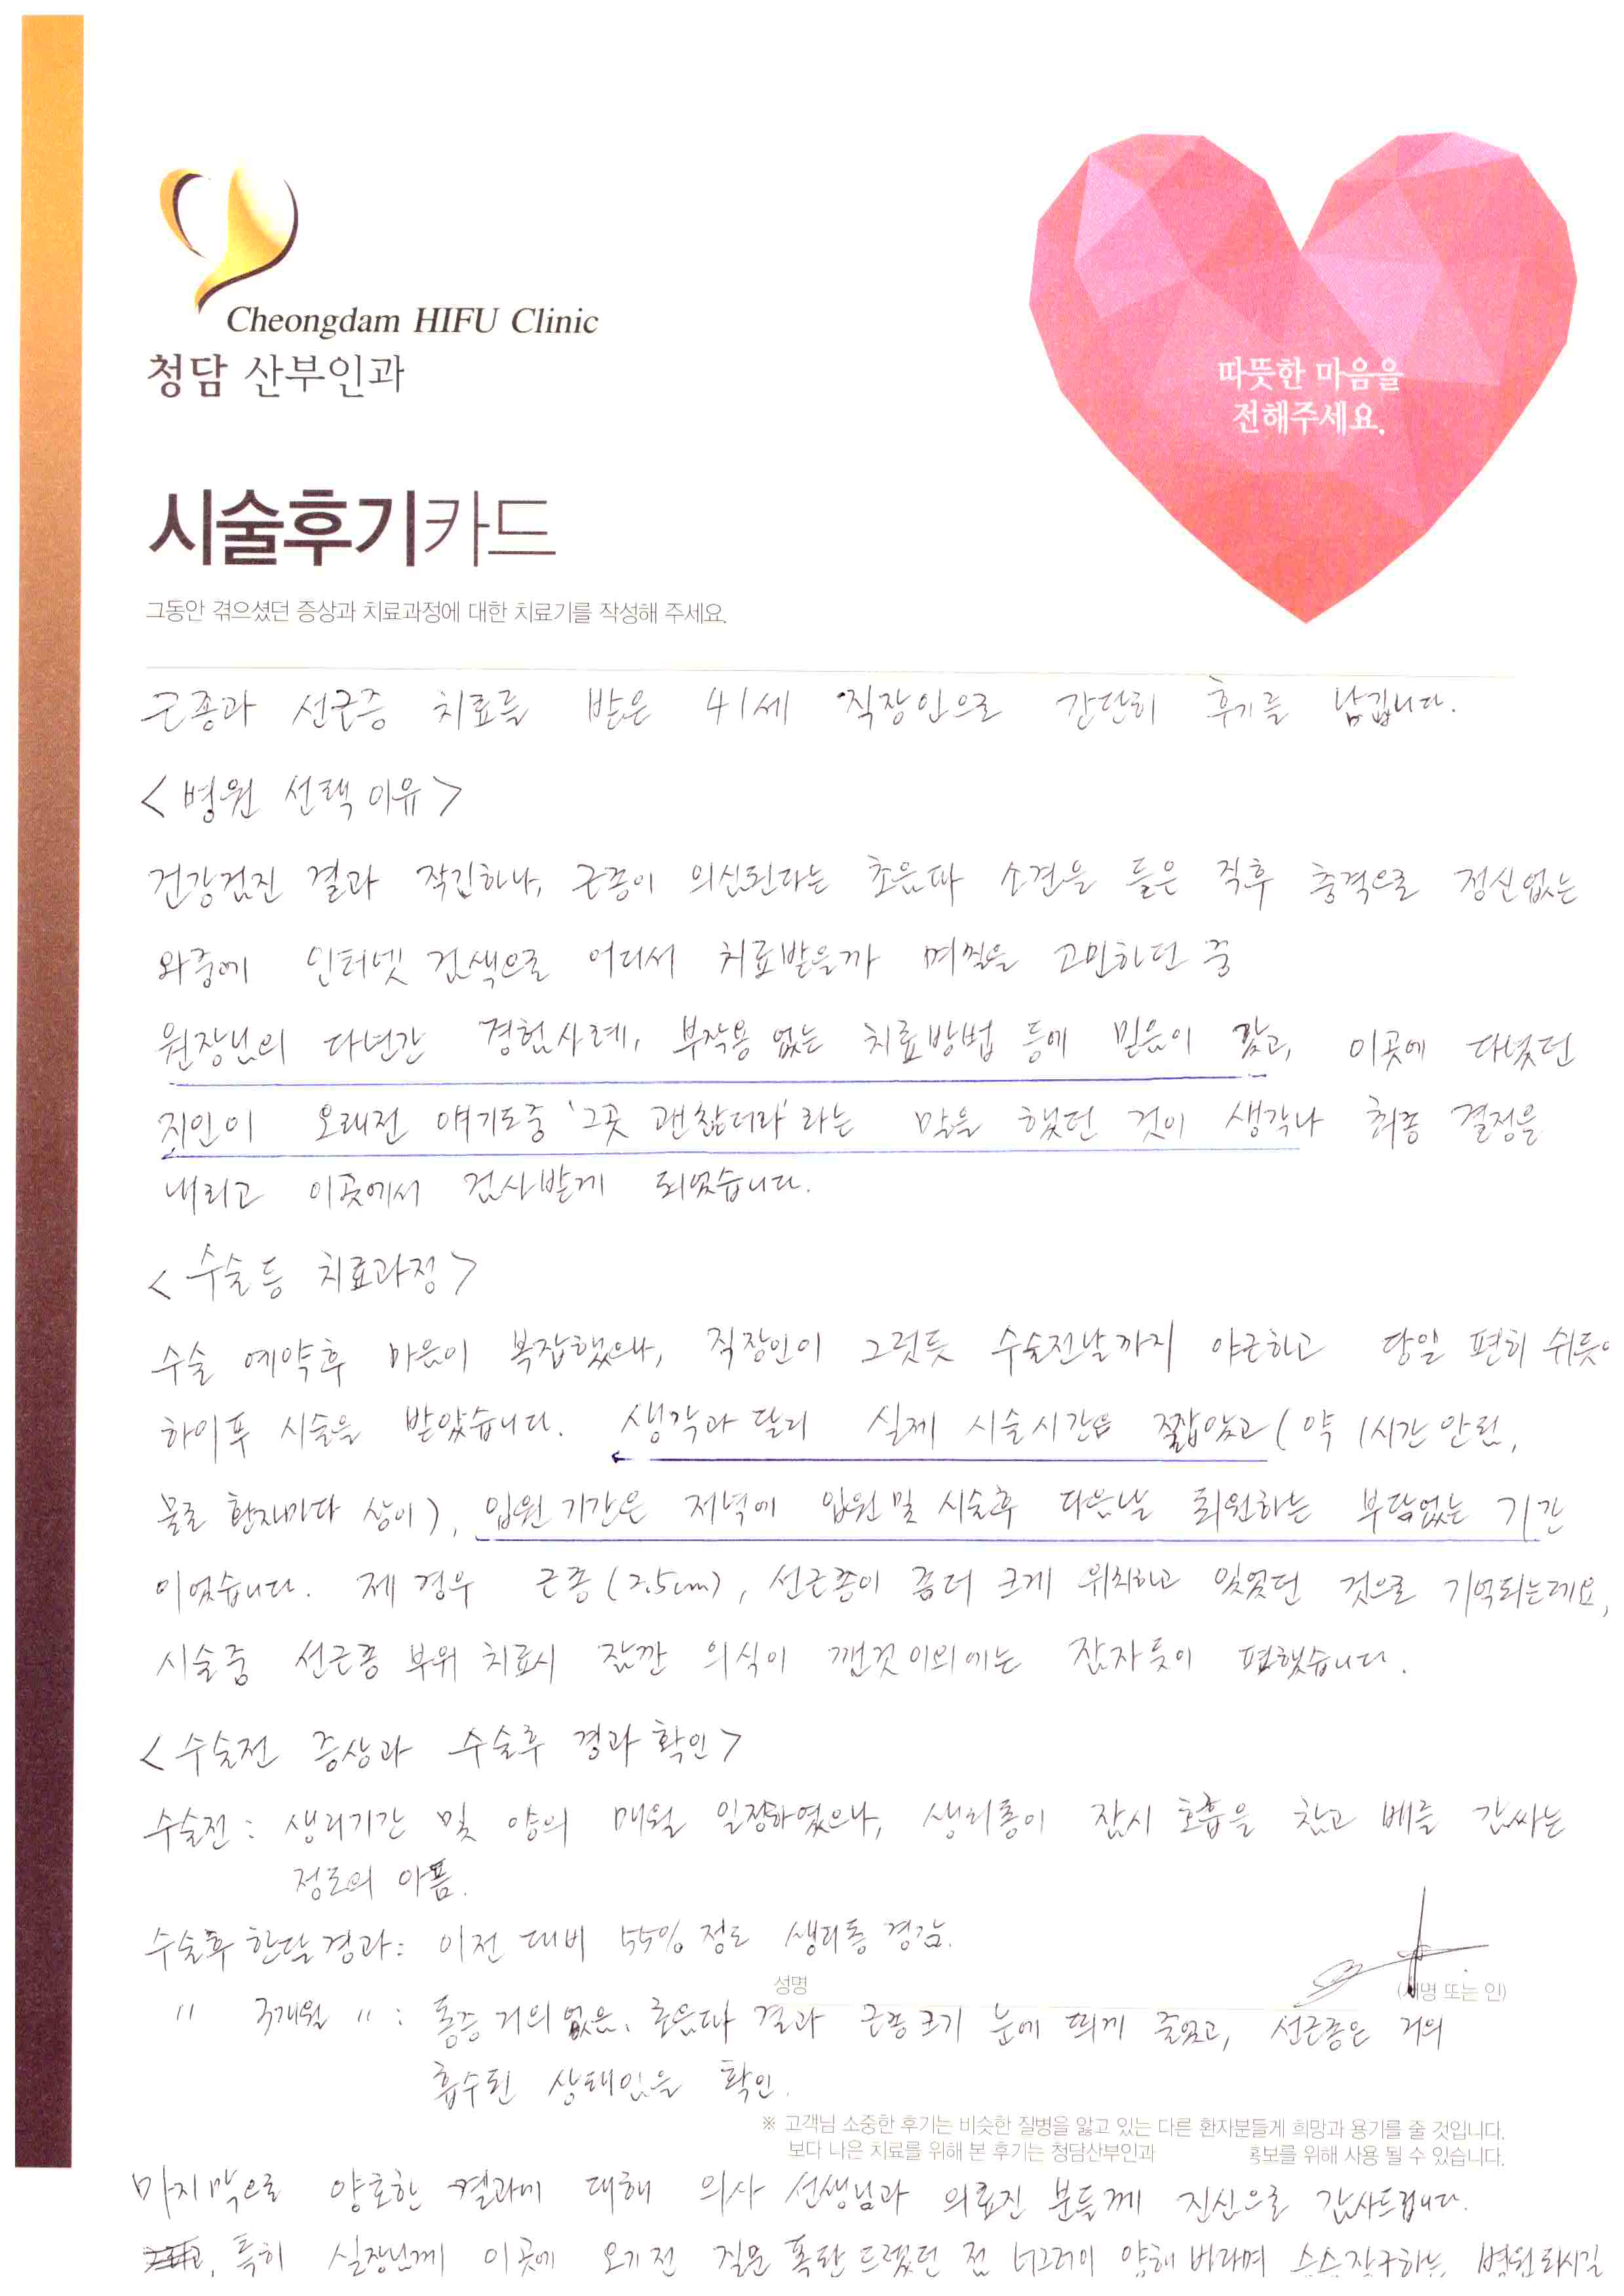 Cheongdam HIFU Clinic
청담 산부인과
따뜻한 마음을
전해주세요.
시술후기카드
그동안 겪으셨던 증상과 치료과정에 대한 치료기를 작성해 주세요.
근종과 선근증 치료를 받은 41세 직장인으로 간단히 후기를 남깁니다.
<병원 선택 이유>
건강검진 결과 작긴하나, 근종이 의심된다는 초음파 소견을 들은 직후 충격으로 정신없는
와중에 인터넷 검색으로 어디서 치료받을까 며칠을 고민하던 중
원장님의 다년간 경험사례, 부작용 없는 치료방법 등에 믿음이 갔고, 이곳에 다녔던
지인이 오래전 얘기도중 '그곳 괜찮더라'라는 말을 했던 것이 생각나 최종 결정을
내리고 이곳에서 검사받게 되었습니다.
<수술등 치료과정>
수술 예약후 마음이 복잡했으나, 직장인이 그렇듯 수술전날까지 야근하고 당일 편히 쉬듯이
하이푸 시술을 받았습니다. 생각과 달리 실제 시술시간은 짧았고(약 1시간 안된,
물론 환자마다 상이), 입원 기간은 저녁에 입원 및 시술후 다음날 퇴원하는 부담없는 기간
이었습니다. 제 경우 근종(2.5cm), 선근종이 좀더 크게 위치하고 있었던 것으로 기억되는데요,
시술중 선근종 부위 치료시 잠깐 의식이 깬것 이외에는 잠자듯이 편했습니다.
<수술전 증상과 수술후 경과 확인>
수술전: 생리기간 및 양의 매월 일정하였으나, 생리통이 잠시 호흡을 참고 배를 감싸는
정도의 아픔.
수술후 한달 경과: 이전 대비 55% 정도 생리통 경감.
성명
(서명 또는 인)
" 3개월 " : 통증 거의 없음. 초음파 결과 근종 크기 눈에 띄게 줄었고, 선근종은 거의
흡수된 상태임을 확인.
※ 고객님 소중한 후기는 비슷한 질병을 앓고 있는 다른 환자분들게 희망과 용기를 줄 것입니다.
보다 나은 치료를 위해 본 후기는 청담산부인과 홍보를 위해 사용 될 수 있습니다.
마지막으로 양호한 결과에 대해 의사 선생님과 의료진 분들께 진심으로 감사드립니다.
특히 실장님께 이곳에 오기 전 질문 폭탄 드렸던 점 너그러이 양해 바라며 승승장구하는 병원되시길